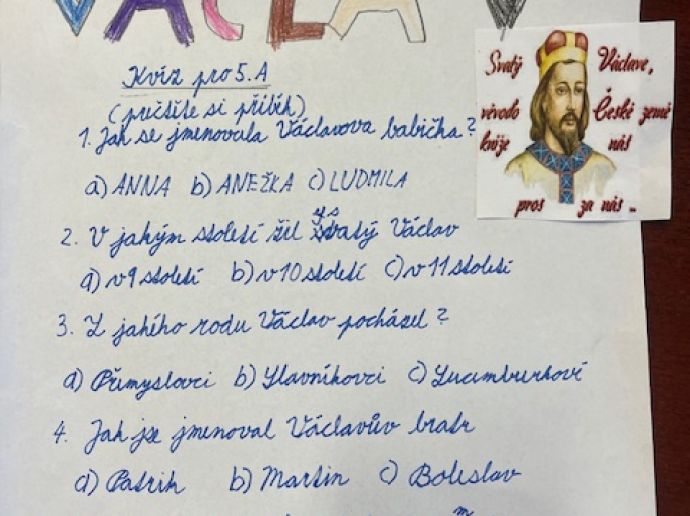 VÁCLAV
Kvíz pro 5.A
(přečtěte si příběh)
1. Jak se jmenovala Václavova babička?
a) ANNA b) ANEŽKA c) LUDMILA
2. V jakým století žil svatý Václav
a) v 9 století b) v 10 století c) v 11 století
3. Z jakého rodu Václav pocházel?
a) Přemyslovci b) Slavníkovci c) Lucemburkové
4. Jak se jmenoval Václavův bratr
a) Patrik b) Martin c) Boleslav
Svatý Václave,
vévodo České země
kníže náš
pros za nás..